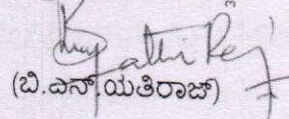 (ಬಿ.ಎನ್.ಯತಿರಾಜ್)